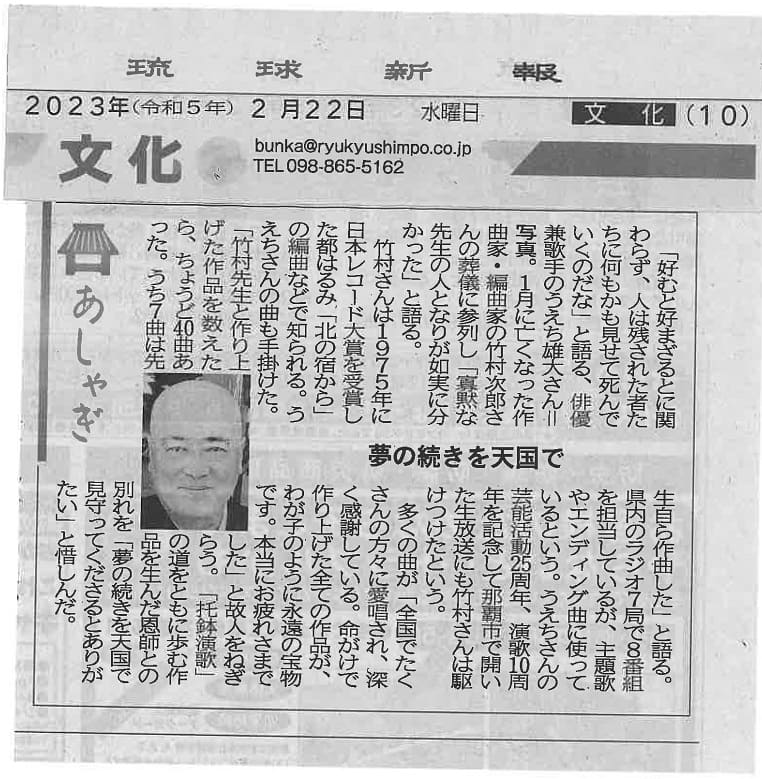 琉球新報
2023年(令和5年) 2月22日 水曜日 文化 (10)
文化
bunka@ryukyushimpo.co.jp
TEL 098-865-5162
あしゃぎ
夢の続きを天国で
「好むと好まざるとに関
わらず、人は残された者た
ちに何もかも見せて死んで
いくのだな」と語る、俳優
兼歌手のうえち雄大さん＝
写真。1月に亡くなった作
曲家・編曲家の竹村次郎さ
んの葬儀に参列し「寡黙な
先生の人となりが如実に分
かった」と語る。
竹村さんは1975年に
日本レコード大賞を受賞し
た都はるみ「北の宿から」
の編曲などで知られる。う
えちさんの曲も手掛けた。
「竹村先生と作り上
げた作品を数えた
ら、ちょうど40曲あ
った。うち7曲は先
生自ら作曲した」と語る。
県内のラジオ7局で8番組
を担当しているが、主題歌
やエンディング曲に使って
いるという。うえちさんの
芸能活動25周年、演歌10周
年を記念して那覇市で開い
た生放送にも竹村さんは駆
けつけたという。
多くの曲が「全国でたく
さんの方々に愛唱され、深
く感謝している。命がけで
作り上げた全ての作品が、
わが子のように永遠の宝物
です。本当にお疲れさまで
した」と故人をねぎ
らう。「托鉢演歌」
の道をともに歩む作
品を生んだ恩師との
別れを「夢の続きを天国で
見守ってくださるとありが
たい」と惜しんだ。